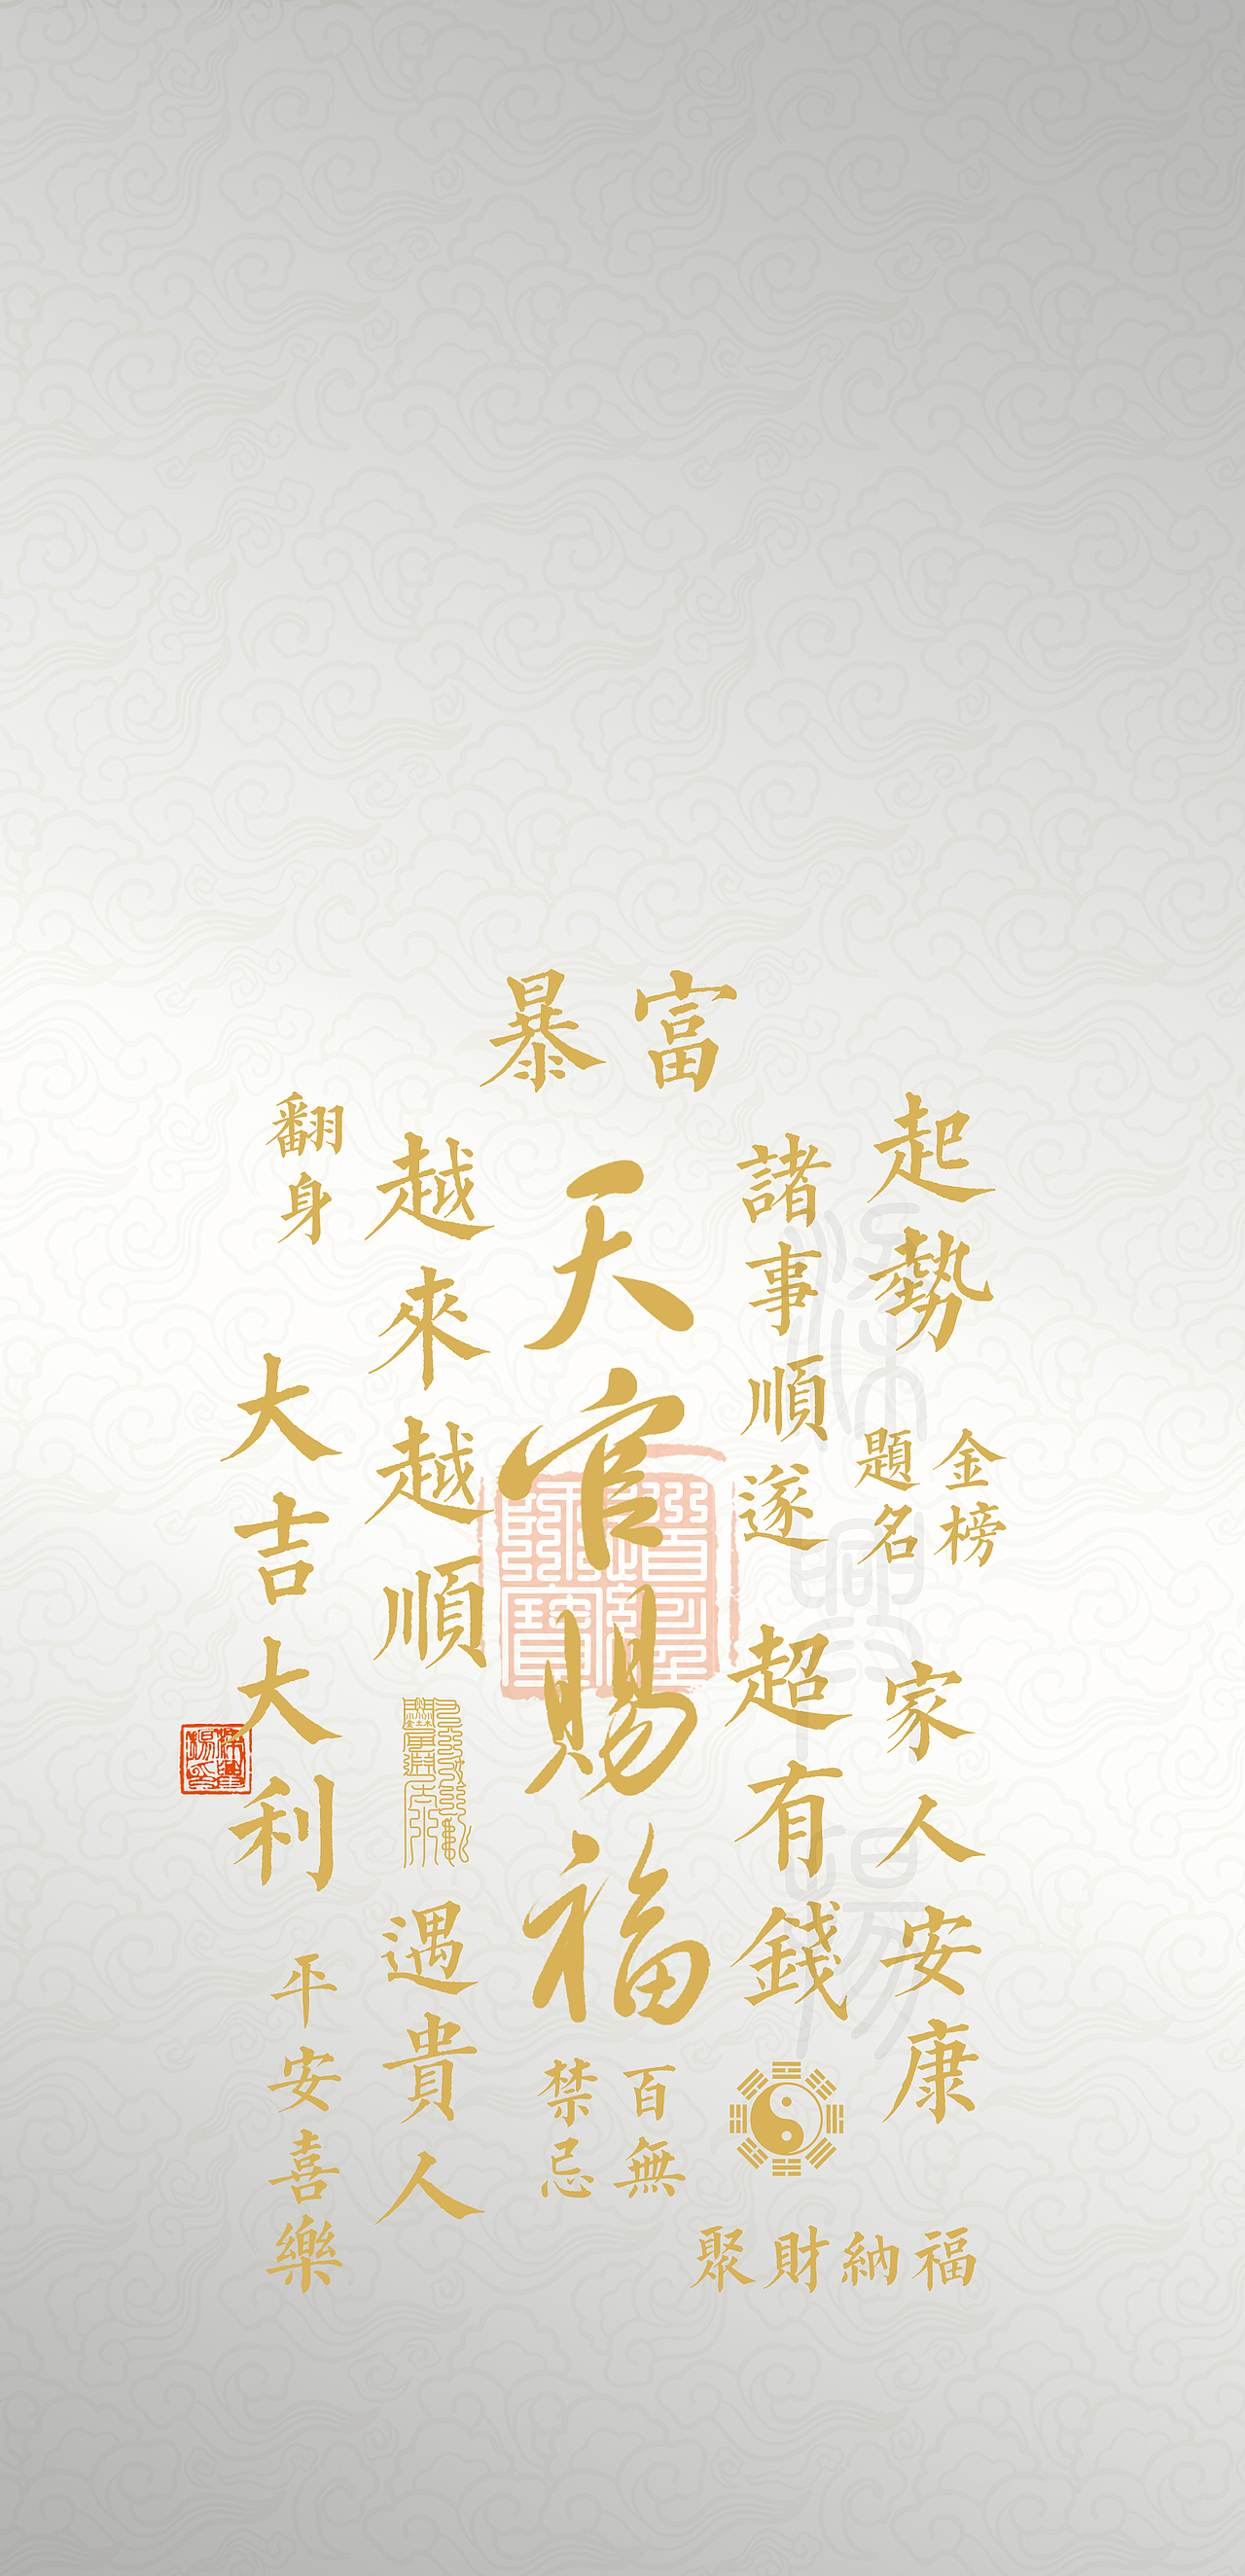 暴富
起勢
金榜
題名
家人安康
諸事順遂
超有錢
天官賜福
百無
禁忌
越來越順
遇貴人
翻身
大吉大利
平安喜樂
聚財納福